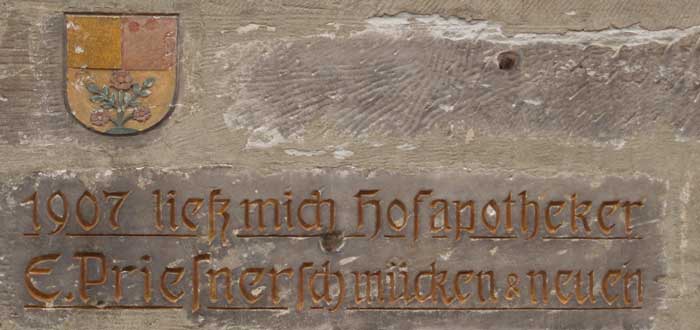 1907 ließ mich Hofapotheker
E. Priesner schmücken & neuen